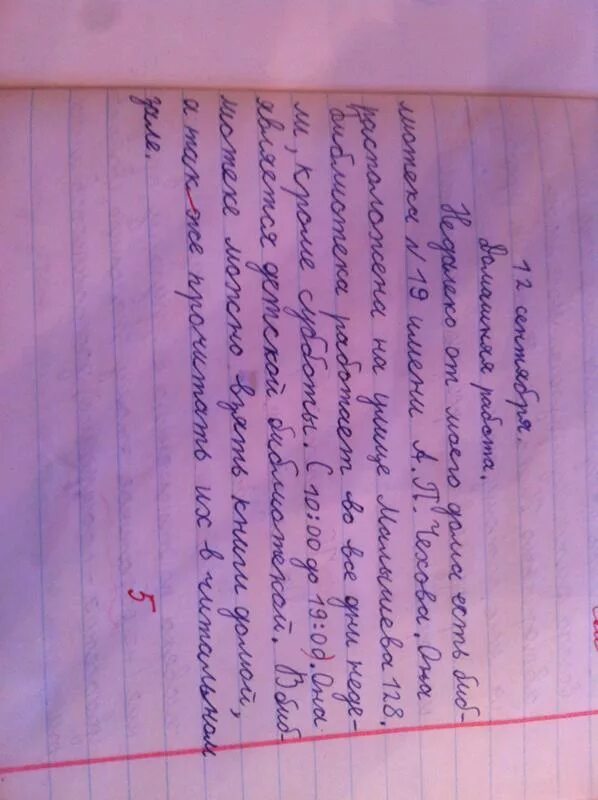 12 сентября.
Домашняя работа.
Недалеко от моего дома есть биб-
лиотека №19 имени А.П. Чехова. Она
расположена на улице Малышева 128.
Библиотека работает во все дни неде-
ли, кроме субботы. (10:00 до 19:00). Она
является детской библиотекой. В биб-
лиотеке можно взять книги домой,
а так же прочитать их в читальном
зале.
5